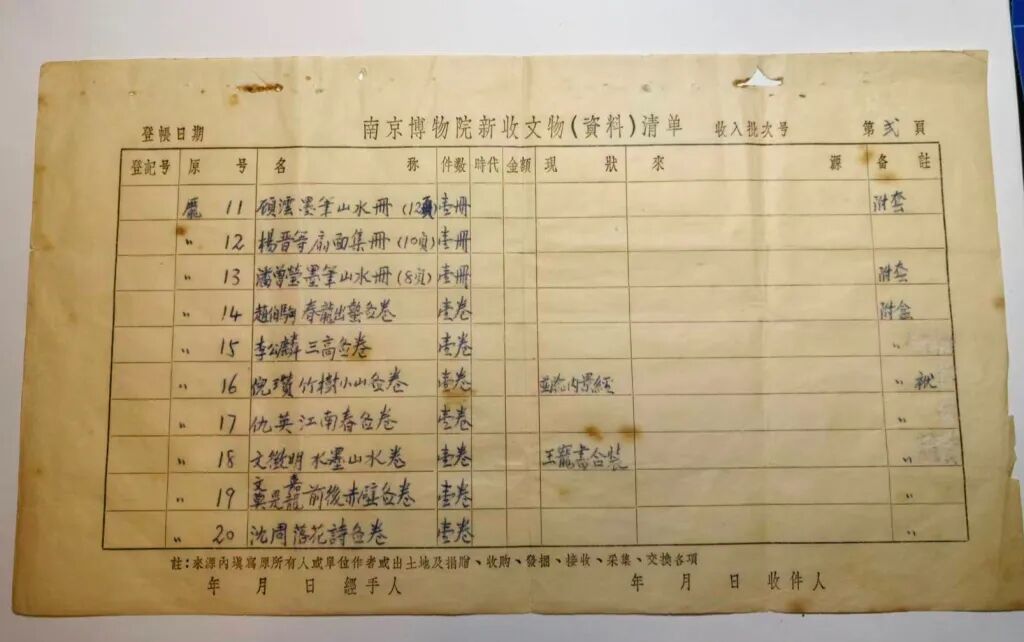 登帳日期 南京博物院新收文物(資料)清单 收入批次号 第贰頁
登記号 原号 名称 件数 時代 金額 現狀 來源 备註
龐 11 顧澐墨筆山水冊(12頁) 壹冊 附套
〃 12 楊晋等扇面集冊(10頁) 壹冊
〃 13 潘曾瑩墨筆山水冊(8頁) 壹冊 附套
〃 14 趙伯駒春龍出蟄啚卷 壹卷 附盒
〃 15 李公麟三高啚卷 壹卷 〃
〃 16 倪瓚竹樹小山啚卷 壹卷 内景經 〃
〃 17 仇英江南春啚卷 壹卷 〃
〃 18 文徵明水墨山水卷 壹卷 王寵書合裝 〃
〃 19 文嘉 莫是龍 前後赤壁啚卷 壹卷 〃
〃 20 沈周落花詩啚卷 壹卷 〃
註:來源內填寫原所有人或單位作者或出土地及捐贈、收购、發掘、接收、采集、交換各項
年 月 日 經手人 年 月 日 收件人